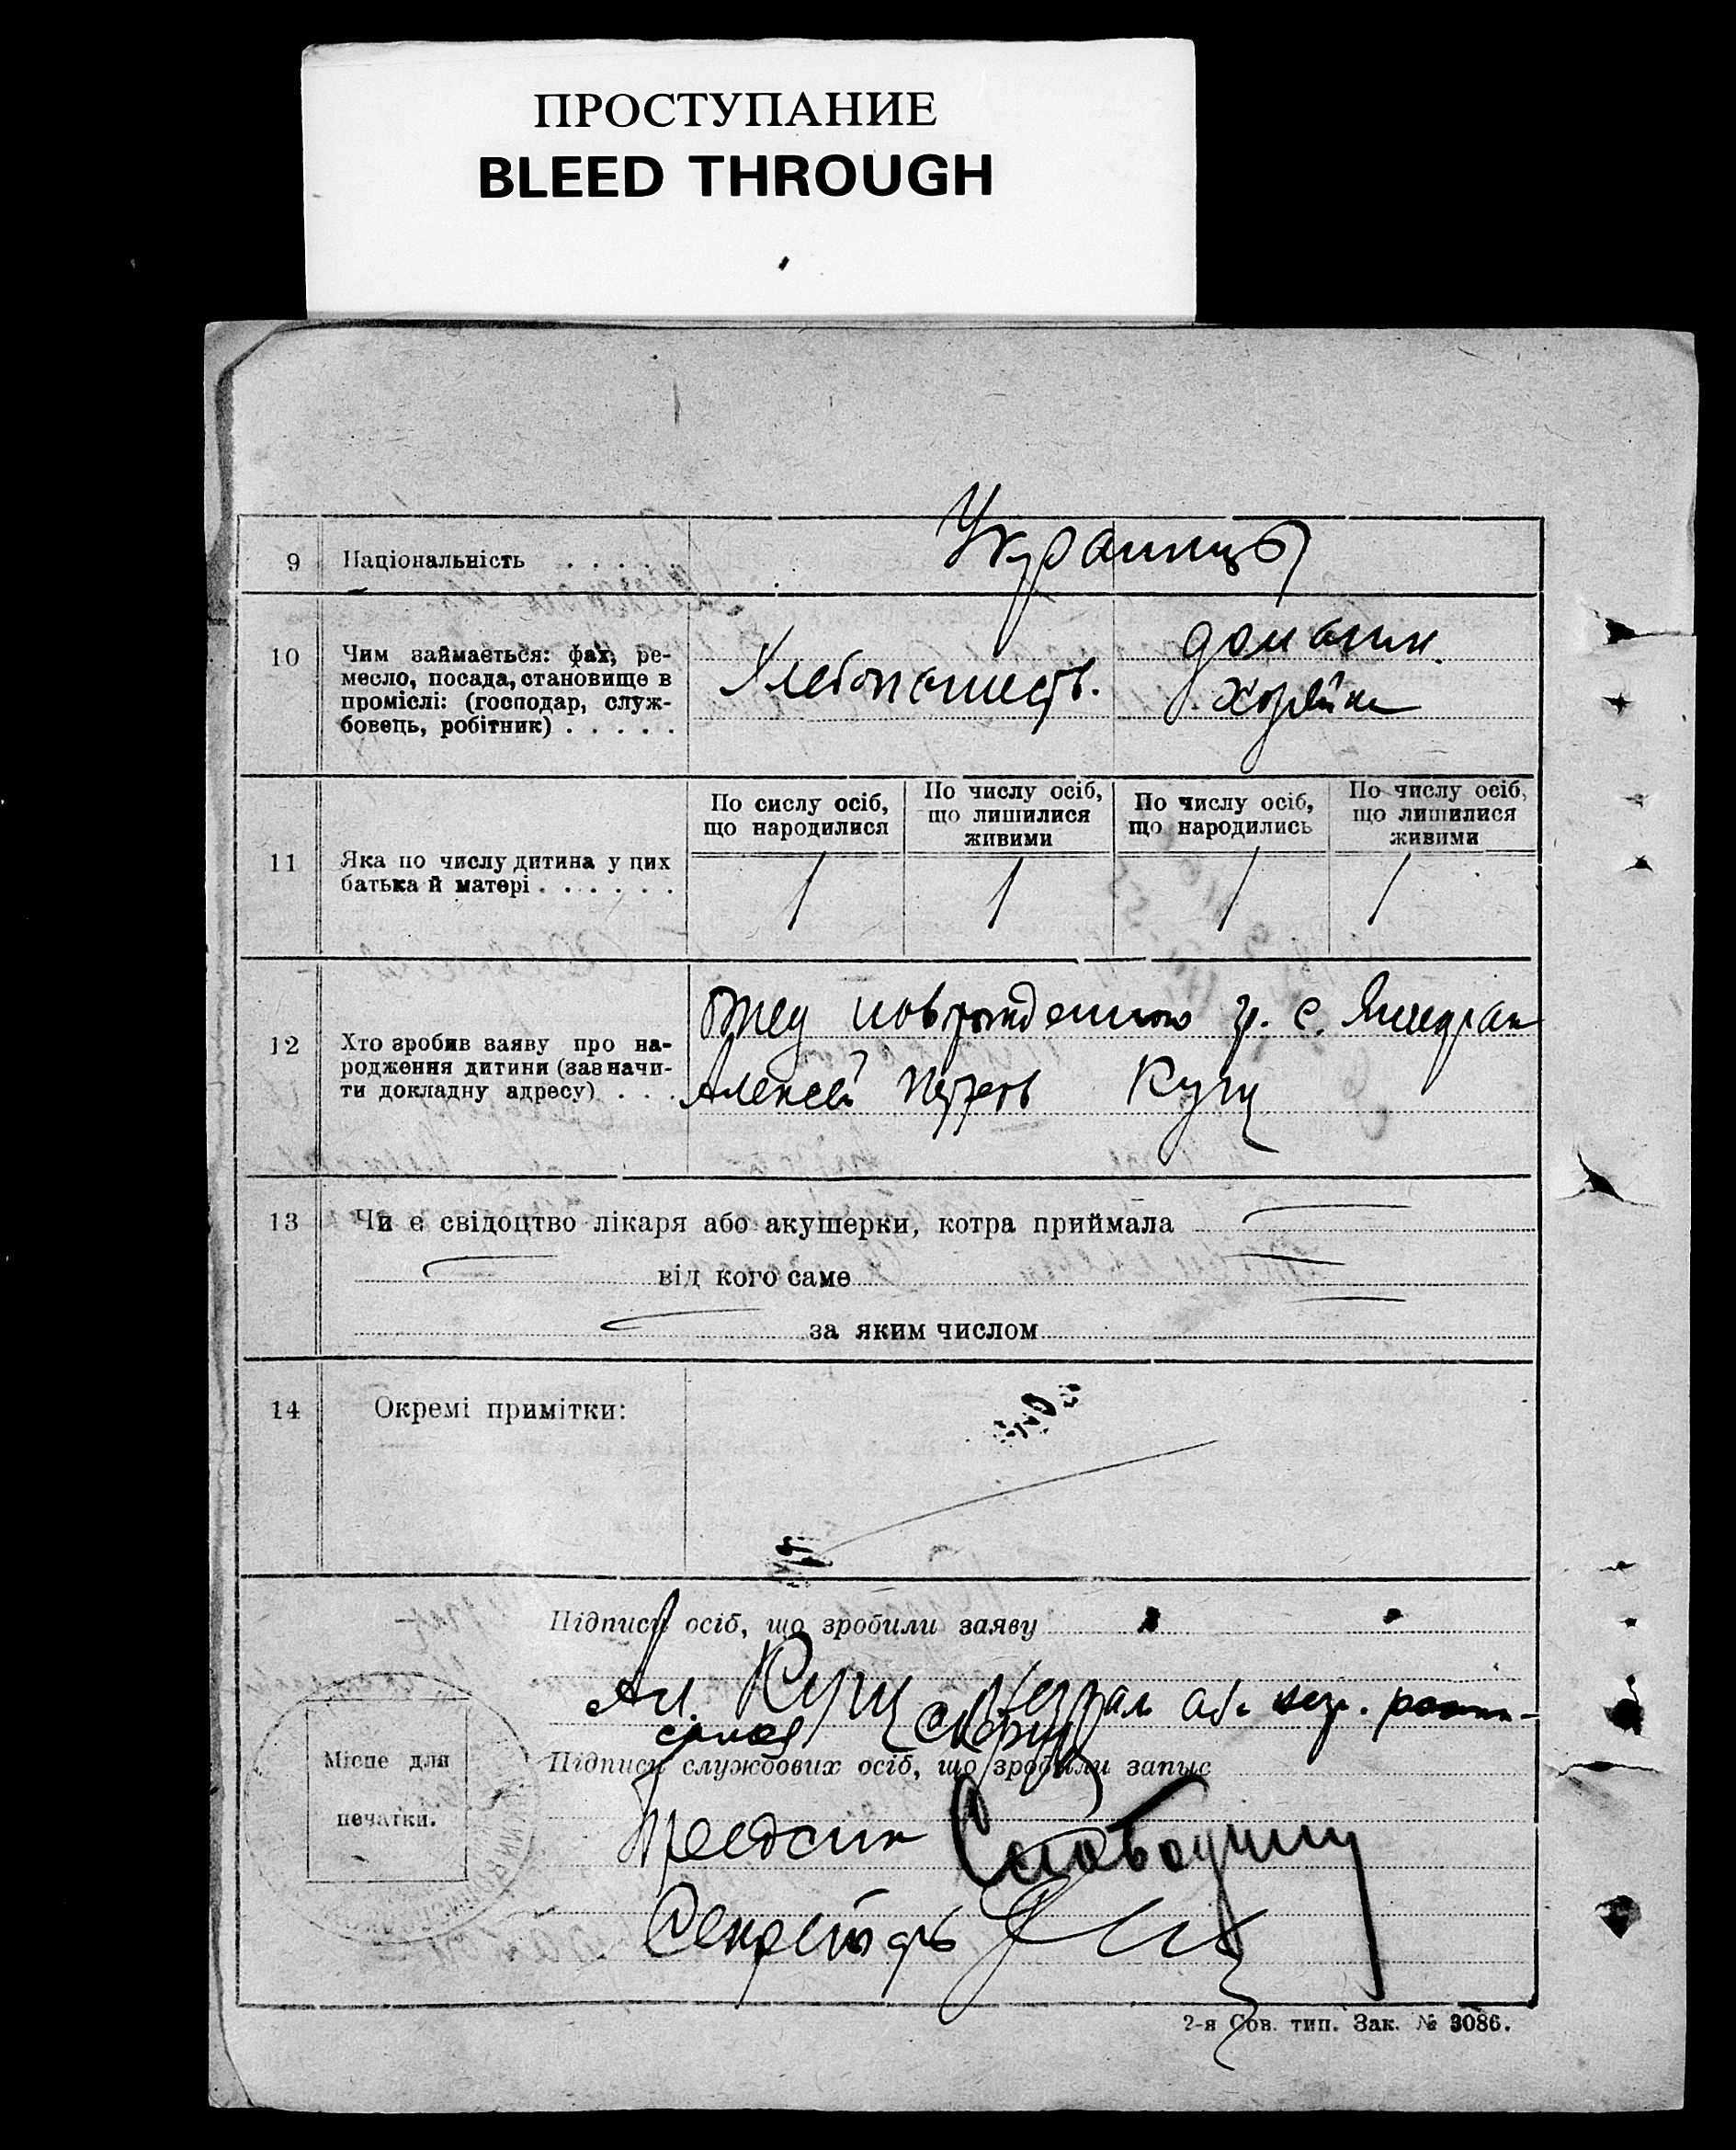 ПРОСТУПАНИЕ
BLEED THROUGH
9 Національність . . . . Украинцы
10 Чим займається: фах, ре-
месло, посада, становище в
проміслі: (господар, служ-
бовець, робітник) . . . . .
Хлебопашеств.
домашн.
хозяйка
11 Яка по числу дитина у цих
батька й матері . . . . . .
По сислу осіб,
що народилися
По числу осіб,
що лишилися
живими
По числу осіб,
що народились
По числу осіб,
що лишилися
живими
1 1 1 1
12 Хто зробив заяву про на-
родження дитини (зазначи-
ти докладну адресу) . . .
гр. с.
Алексей Петров Куц
13 Чи є свідоцтво лікаря або акушерки, котра приймала
від кого саме
за яким числом
14 Окремі примітки:
Підписи осіб, що зробили заяву
Ал. Куц
Підписи службових осіб, що зробили запис
Місце для
печатки.
Предсик
Секретарь
2-я Сов. тип. Зак. № 3086.